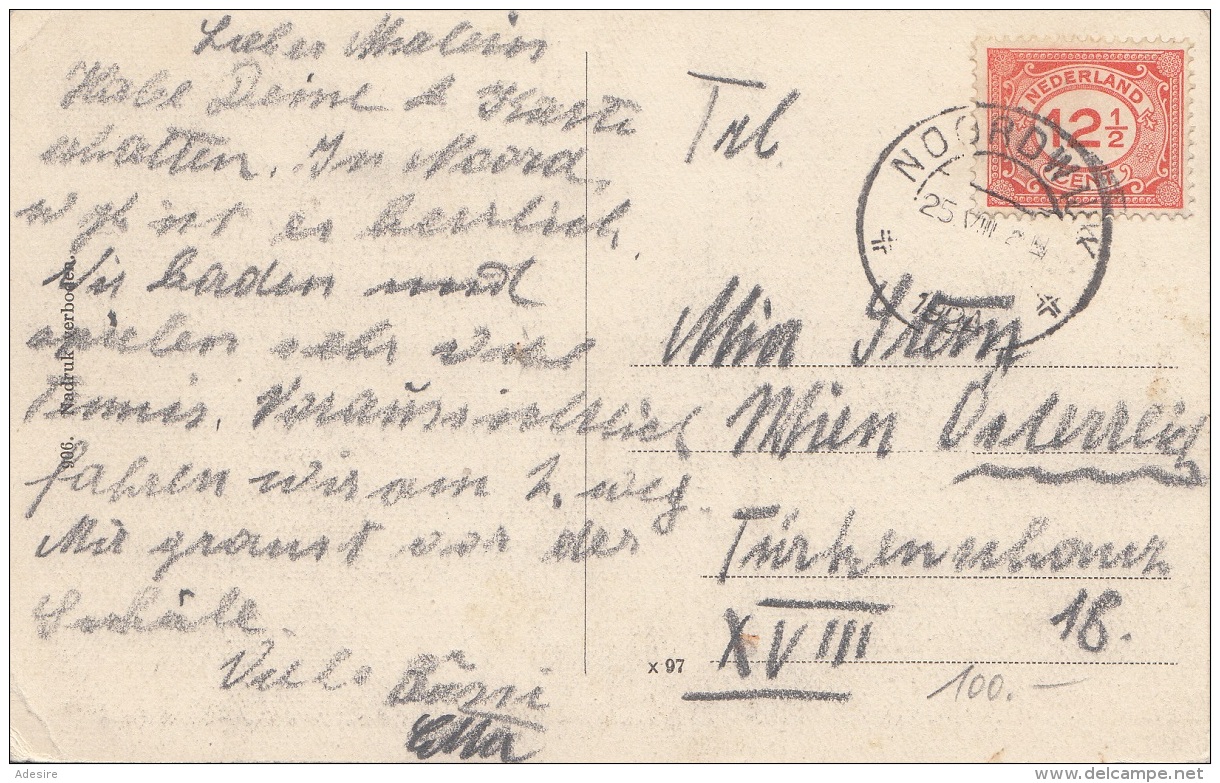 Liebes Malein
Habe Deine 2 Karte
erhalten. In Noord
wyk ist es herrlich
Wir baden und
spielen sehr viel
Tennis. Voraussichtlich
fahren wir am 2. weg.
Mir graust vor der
Schule.
Viele Bussi
Etta
906. Nadruk verboden.
x 97
Frl.
NEDERLAND
12 1/2
CENT
NOORDWIJK
25 VIII
Mia Stern
Wien Österreich
Türkenschanz
18.
XVIII
100.—
Adesire
delcampe.net